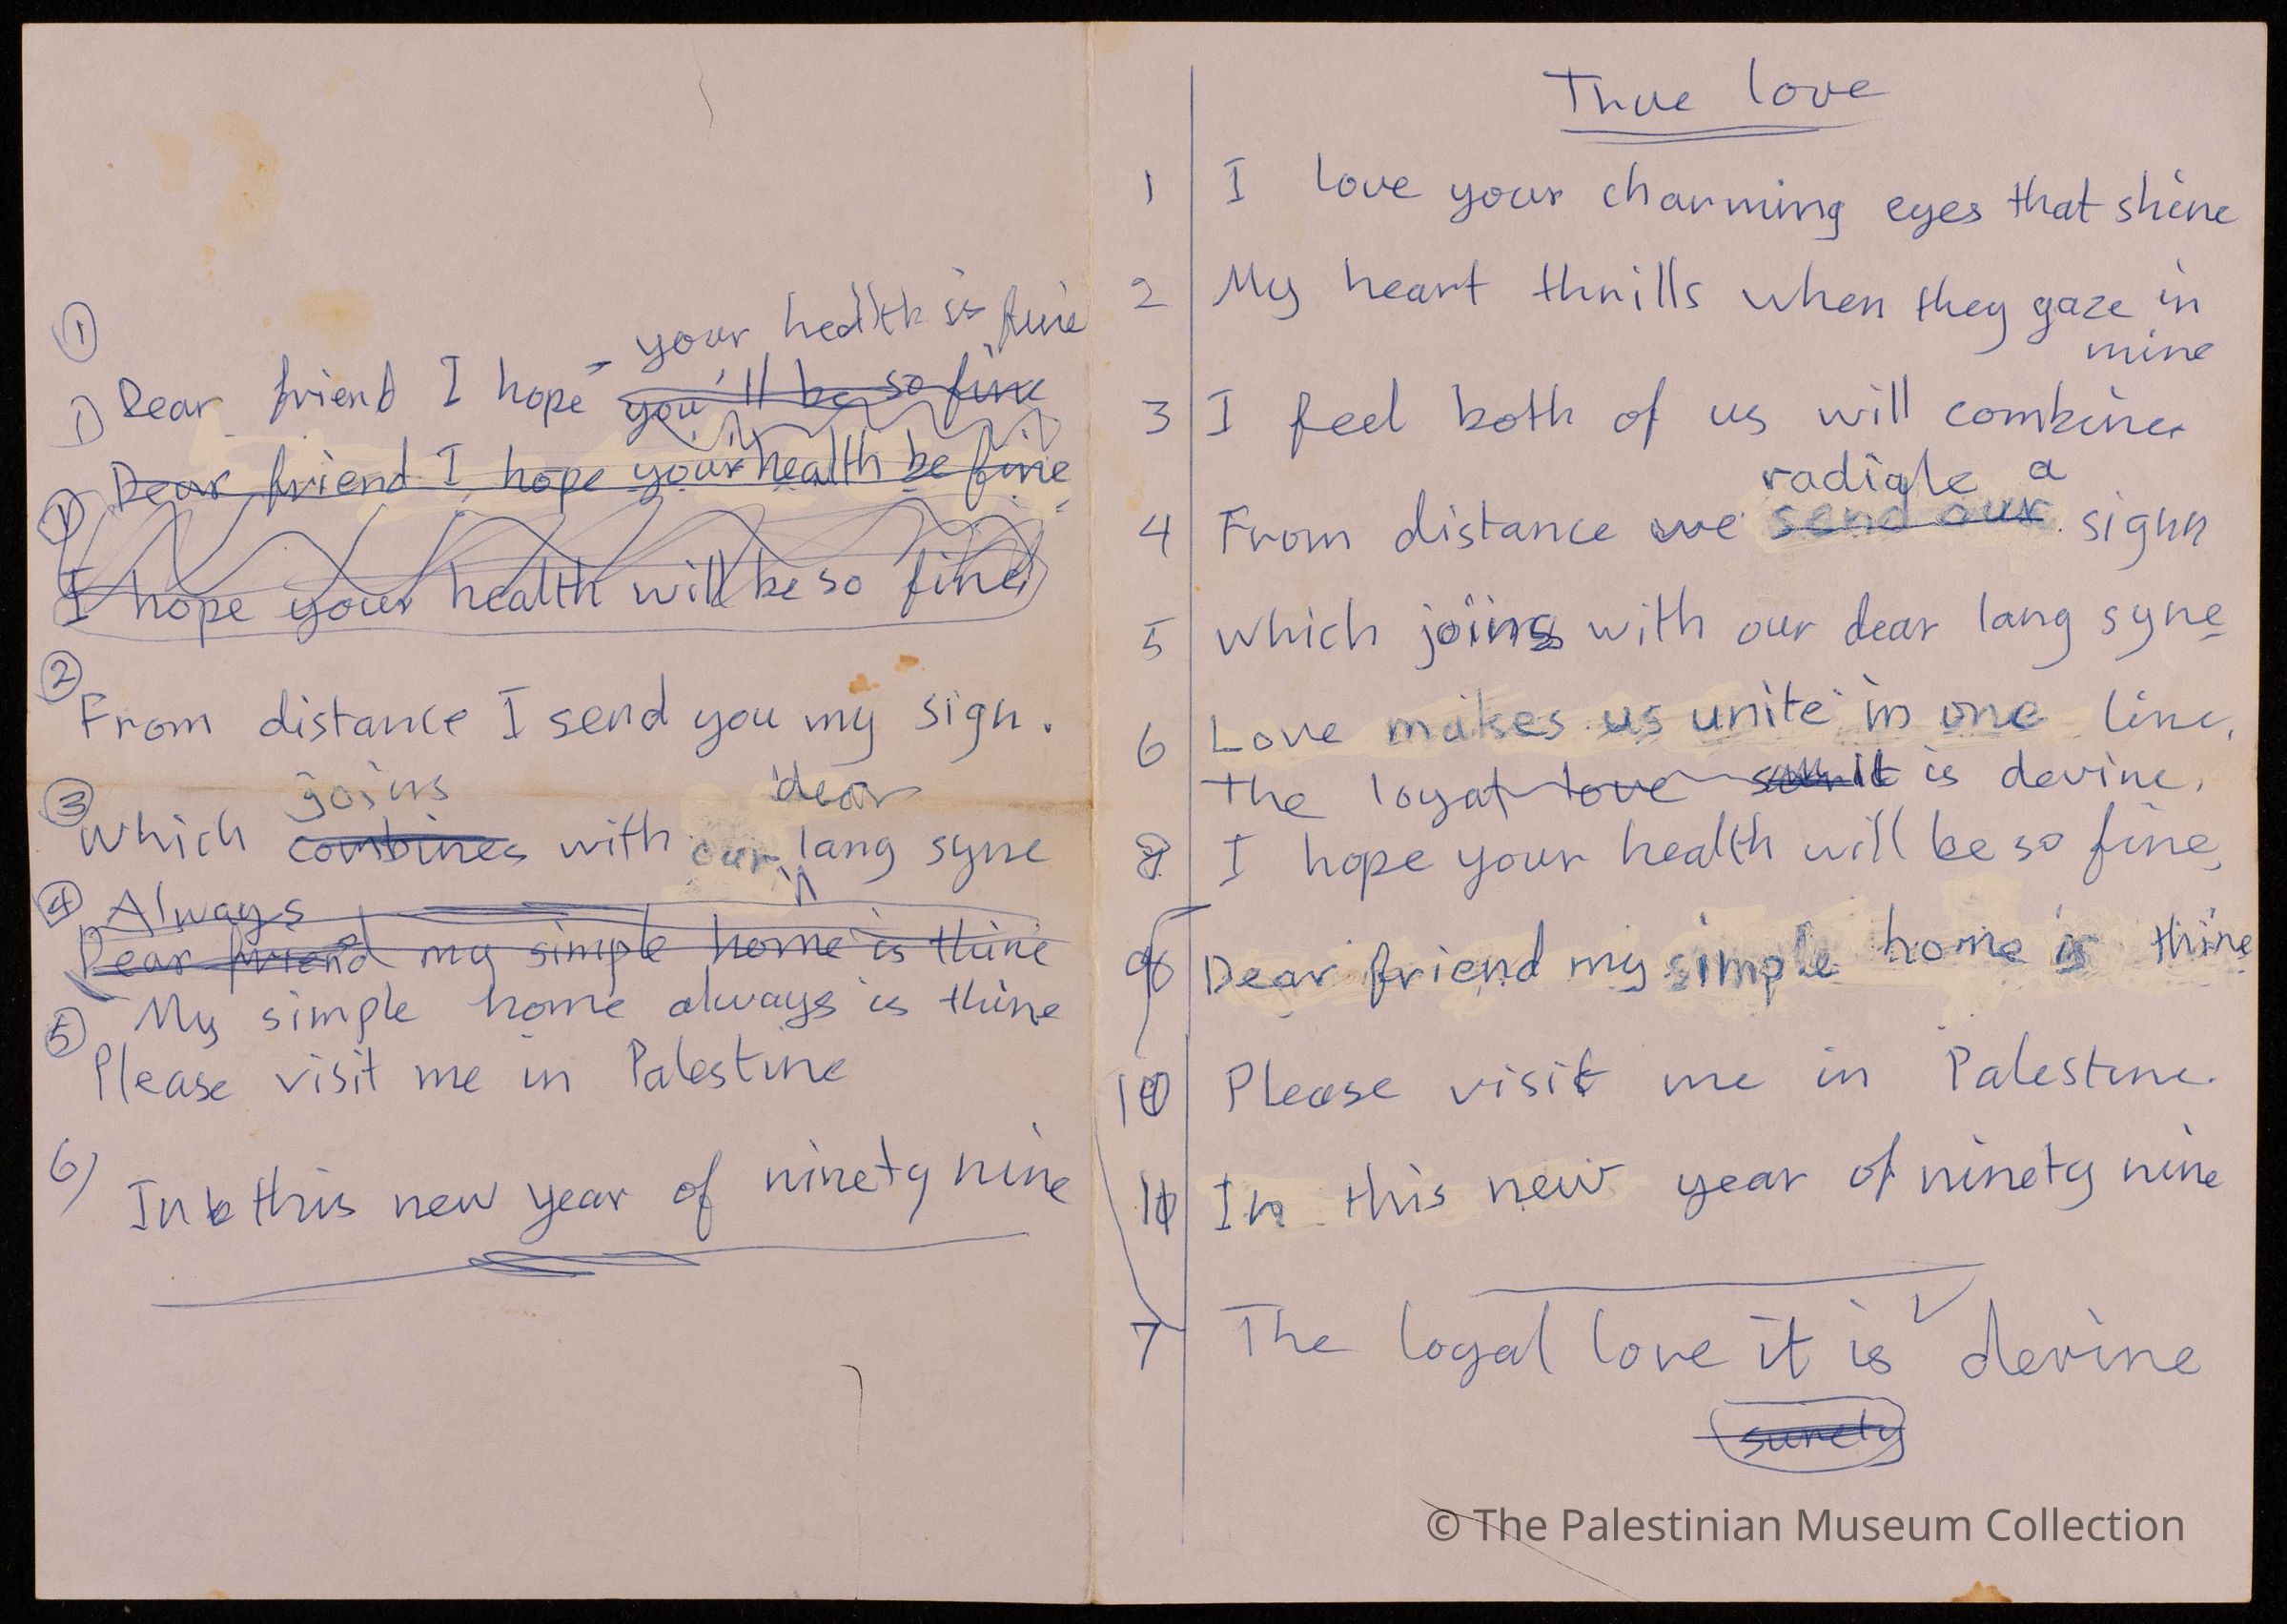 ①
your health is fine
1) Dear friend I hope you'll be so fine
1) Dear friend I hope your health be fine
I hope your health will be so fine
②
From distance I send you my sign.
joins dear
③ which combines with our lang syne
④ Always
Dear friend my simple home is thine
My simple home always is thine
⑤
Please visit me in Palestine
6) In this new year of ninety nine
True love
1 I love your charming eyes that shine
2 My heart thrills when they gaze in
mine
3 I feel both of us will combine
radiate a
4 From distance we send our sign
5 which joins with our dear lang syne
6 Love makes us unite in one line,
The loyal love it is devine.
8 I hope your health will be so fine,
9 Dear friend my simple home is thine
10 Please visit me in Palestine.
11 In this new year of ninety nine
7 The loyal love it is devine
surely
© The Palestinian Museum Collection